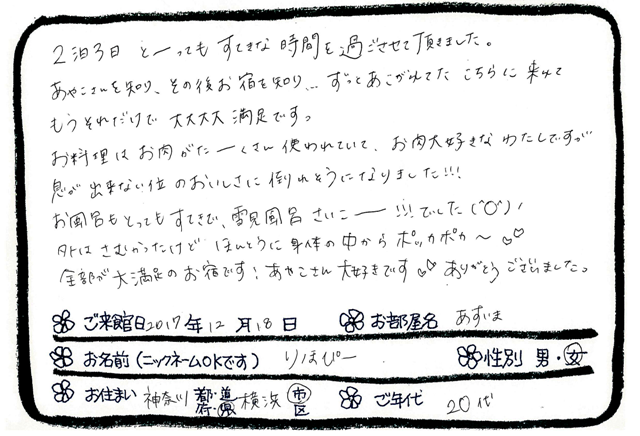 2泊3日 とーってもすてきな時間を過ごさせて頂きました。
あやこさんを知り、その後お宿を知り… ずっとあこがれてた こちらに来れて
もうそれだけで 大大大大満足ですっ
お料理はお肉がたーくさん使われていて、お肉大好きな わたしですが
息が出来ない位のおいしさに倒れそうになりました!!!
お風呂もとってもすてきで、雪見風呂さいこー!!!でした(^O^)!
外はさむかったけど ほんとうに身体の中からポッカポカ〜♡♡
全部が大満足のお宿です! あやこさん大好きです♡♡ ありがとうございましたっ
ご来館日2017年12月18日 お部屋名 あずいま
お名前(ニックネームOKです) りほぴー 性別 男・女
お住まい 神奈川 都・道府・県 横浜 市区 ご年代 20代